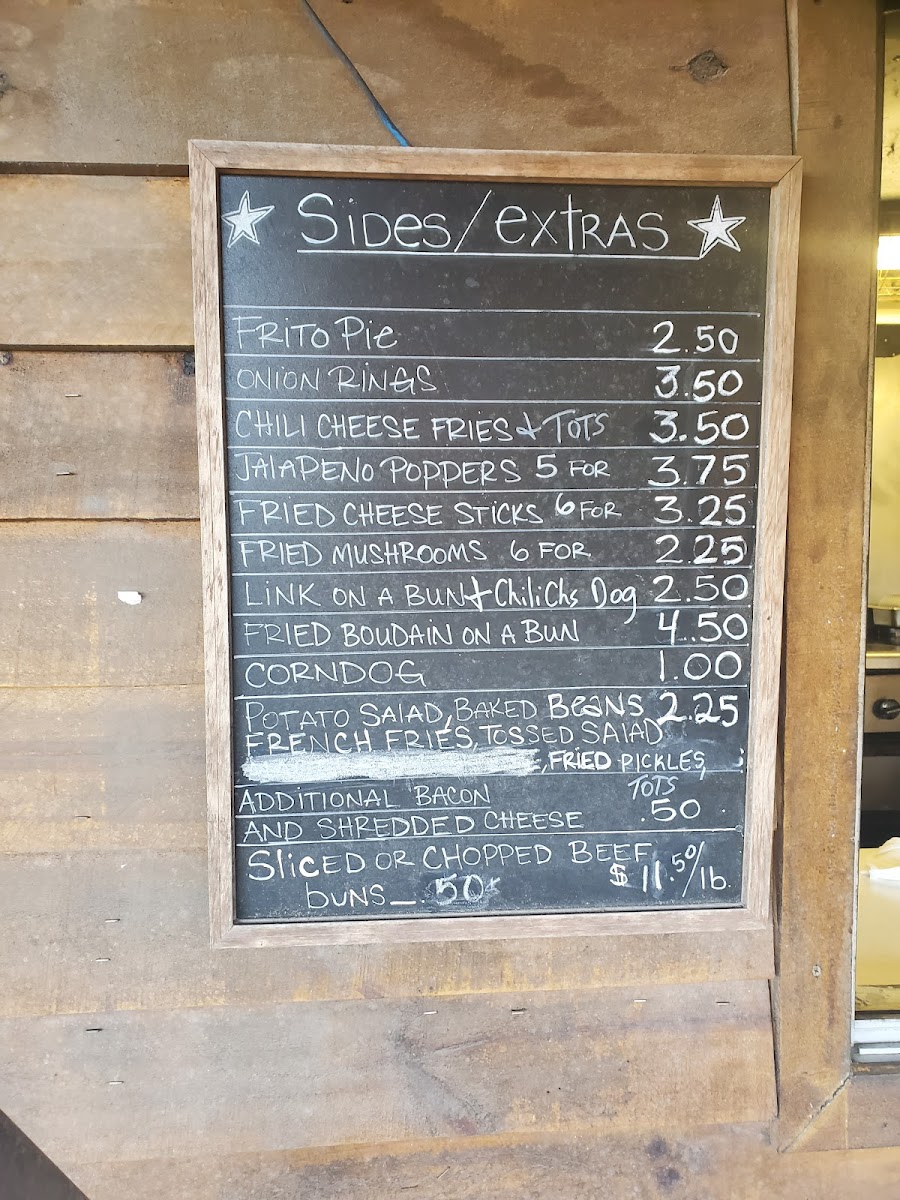 Sides/extras
Frito Pie 2.50
ONION RINGS 3.50
CHILI CHEESE FRIES & TOTS 3.50
JALAPENO POPPERS 5 FOR 3.75
FRIED CHEESE STICKS 6 FOR 3.25
FRIED MUSHROOMS 6 FOR 2.25
LINK ON A BUN + Chili Chs Dog 2.50
FRIED BOUDAIN ON A BUN 4.50
CORNDOG 1.00
POTATO SALAD, BAKED BEANS 2.25
FRENCH FRIES, TOSSED SALAD
, FRIED PICKLES,
TOTS
ADDITIONAL BACON
AND SHREDDED CHEESE .50
SLICED OR CHOPPED BEEF
buns .50¢ $11.50/lb.